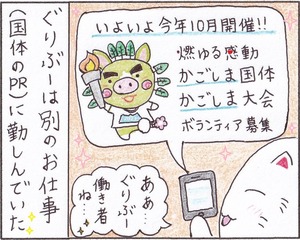 いよいよ今年10月開催!!
燃ゆる感動
かごしま国体
かごしま大会
ボランティア募集
ぐりぶーは別のお仕事
(国体のPR)に勤しんでいた
ああ…
ぐりぶー
働き者
ね…